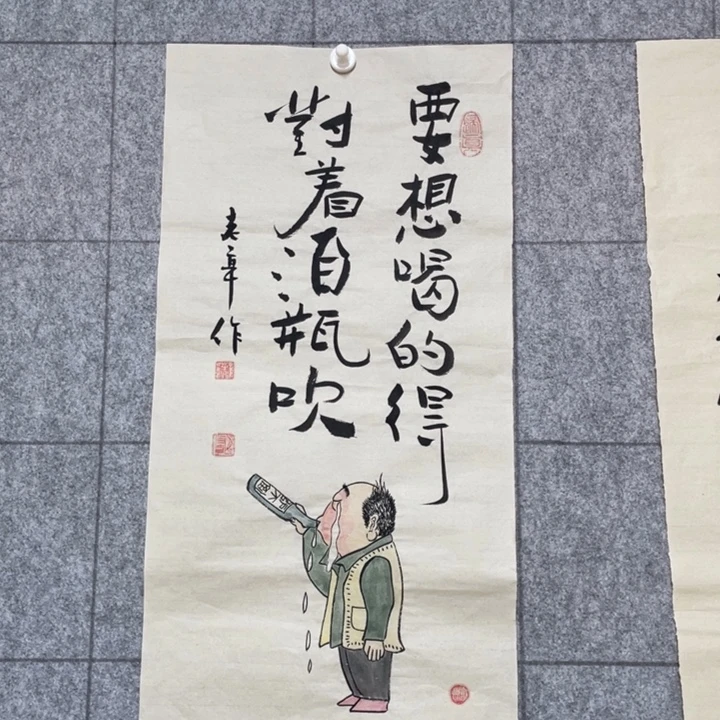 要想喝的得
對着酒瓶吹
老辜作